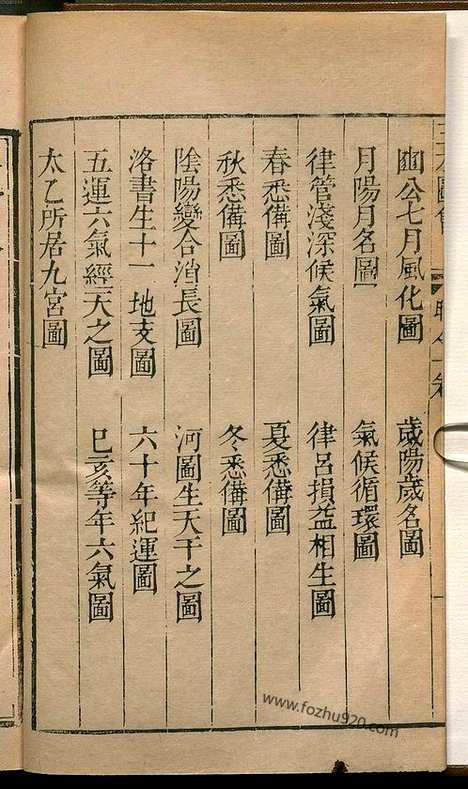 豳公七月風化圖　歲陽歲名圖
月陽月名圖　氣候循環圖
律管淺深候氣圖　律呂損益相生圖
春悉備圖　夏悉備圖
秋悉備圖　冬悉備圖
陰陽變合消長圖　河圖生天干之圖
洛書生十一地支圖　六十年紀運圖
五運六氣經天之圖　巳亥等年六氣圖
太乙所居九宮圖
www.fozhu920.com